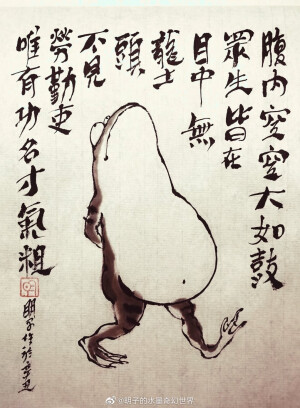 腹内空空大如鼓
眾生皆在
目中無
龍士
頭
不見
勞勤吏
唯有功名才氣粗
明子作於
@明子的水墨奇幻世界